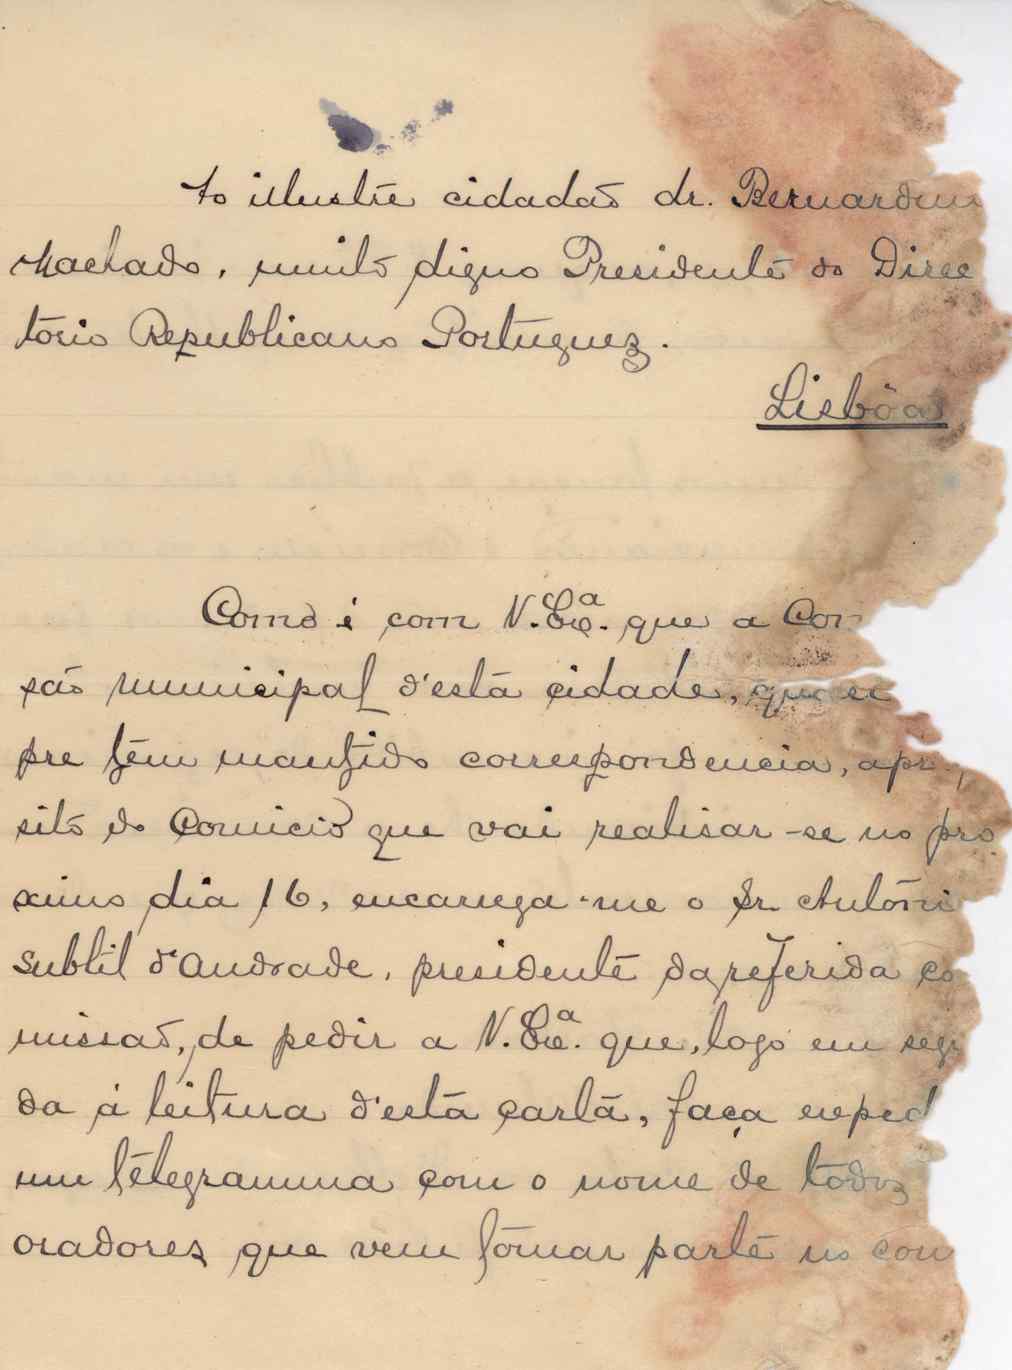 Ao illustre cidadão dr. Bernardin
Machado, muito digno Presidente do Direc
torio Republicano Portuguez.
Lisbôa
Como é com V. Exª. que a Com
são municipal d'esta cidade, quasi
pre têm mantido correspondencia, apro
sito do Comicio que vai realisar-se no pro
ximo dia 16, encarrega-me o Sr. António
Subtil d'Andrade, presidente da referida co
missão, de pedir a V. Exª. que, logo em segu
da á leitura d'esta carta, faça exped
um telegramma com o nome de todos
oradores que vem tomar parte no com